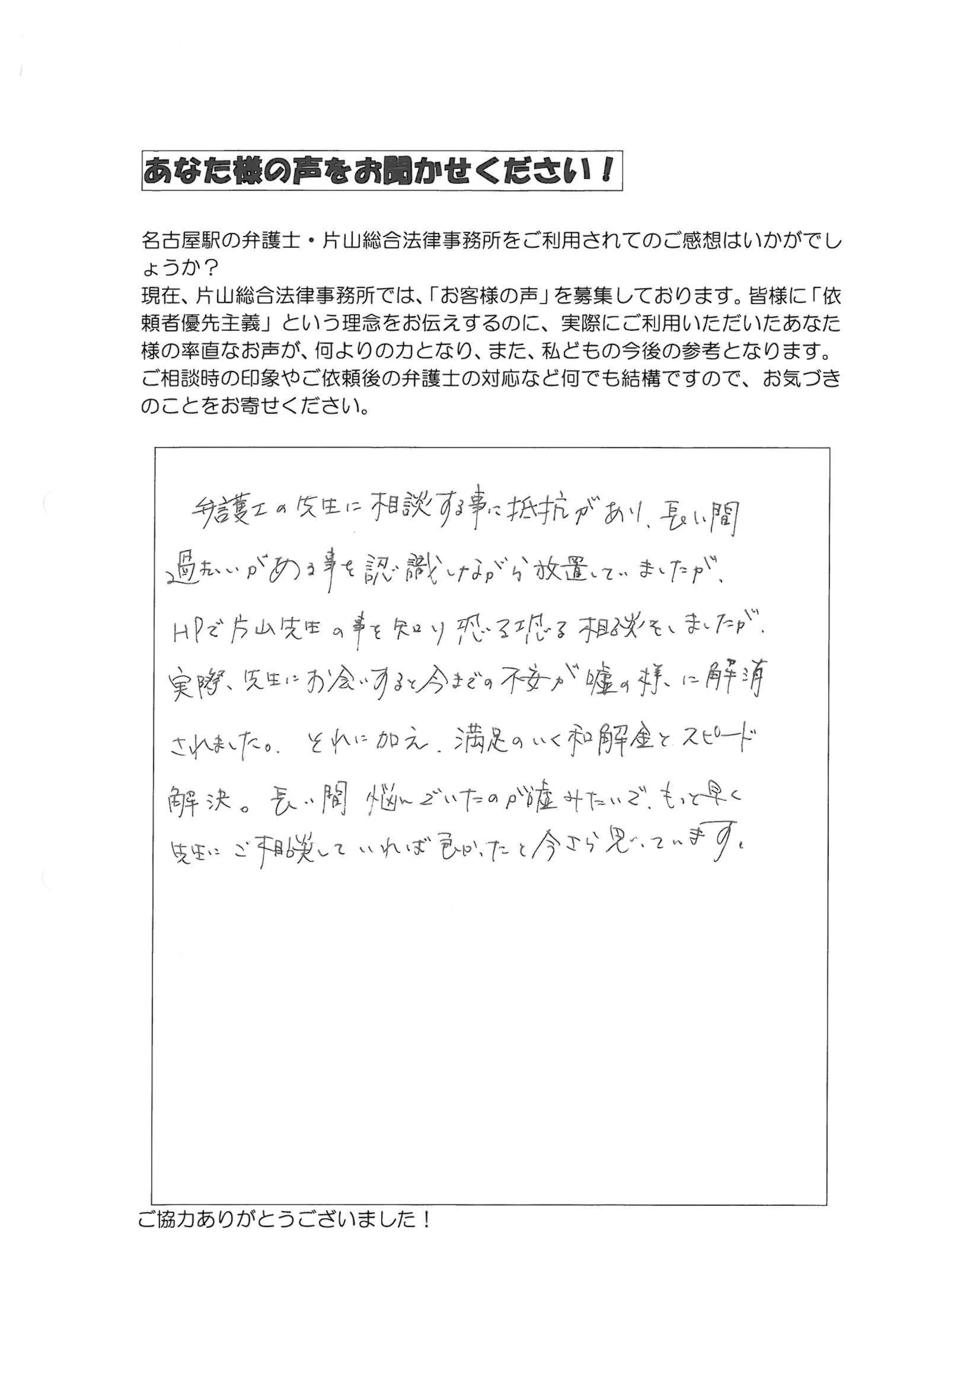 あなた様の声をお聞かせください！
名古屋駅の弁護士・片山総合法律事務所をご利用されてのご感想はいかがでし
ょうか？
現在、片山総合法律事務所では、「お客様の声」を募集しております。皆様に「依
頼者優先主義」という理念をお伝えするのに、実際にご利用いただいたあなた
様の率直なお声が、何よりの力となり、また、私どもの今後の参考となります。
ご相談時の印象やご依頼後の弁護士の対応など何でも結構ですので、お気づき
のことをお寄せください。
弁護士の先生に相談する事に抵抗があり、長い間
過払いがある事を認識しながら放置していましたが、
HPで片山先生の事を知り恐る恐る相談をしましたが、
実際、先生にお会いすると今までの不安が嘘の様に解消
されました。それに加え、満足のいく和解金とスピード
解決。長い間悩んでいたのが嘘みたいで、もっと早く
先生にご相談していれば良かったと今さら思っています。
ご協力ありがとうございました！